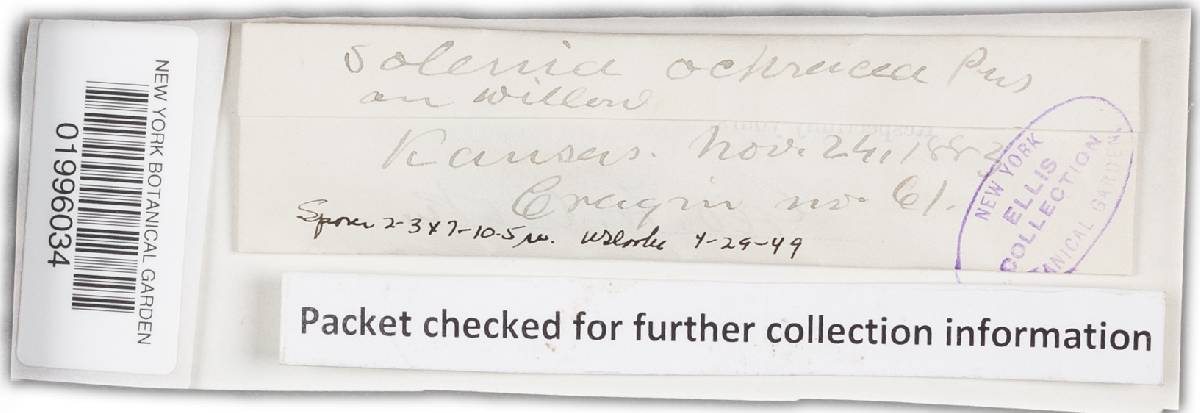 NEW YORK BOTANICAL GARDEN
01996034
Solenia ochracea Pers
on willow
Kansas. Nov. 24, 1882
Cragin no. 61.
Spores 2-3 x 7-10.5 µ. WBCooke 4-29-49
NEW YORK
ELLIS
COLLECTION
BOTANICAL GARDEN.
Packet checked for further collection information